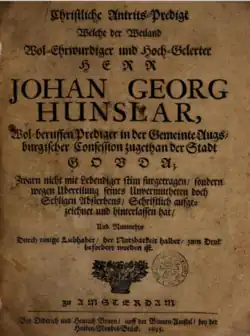 Christliche Antrits-Predigt
Welche der Weiland
Wol-Ehrwurdiger und Hoch-Gelerter
HERR
JOHAN GEORG
HUNSLAR,
Wol-beruffen Prediger in der Gemeinte Augs-
burgischer Confession zugethan der Stadt
GOUDA;
Zwarn nicht mit Lebendiger stim furgetragen / sondern
wegen Ubereilung seines Unvermutheten doch
Seligen Absterbens / Schrifftlich auffge-
zeichnet und hinterlassen hat /
Und Nunmehr
Durch einige Liebhaber / der Nutzbarkeit halber / zum Druk
befordert worden ist.
zu AMSTERDAM
Bey Diderich und Henrich Bruyn / auff der Binnen-Amstel / bey der